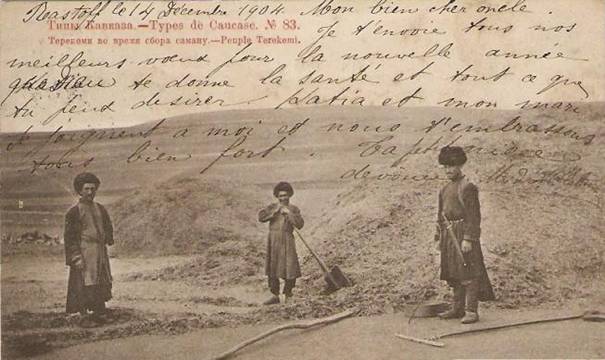 Rostoff le 14 Décembre 1904. Mon bien cher oncle
Типы Кавказа.—Types de Caucase. № 83.
Je t'envoie tous nos
Терекеми во время сбора саману.—Peuple Terekemi.
meilleurs vœux pour la nouvelle année
que Dieu te donne la santé et tout ce que
tu peux desirer. Katia et mon mari
se joignent a moi et nous t'embrassons
tous bien fort. Ta petite nièce
devouée